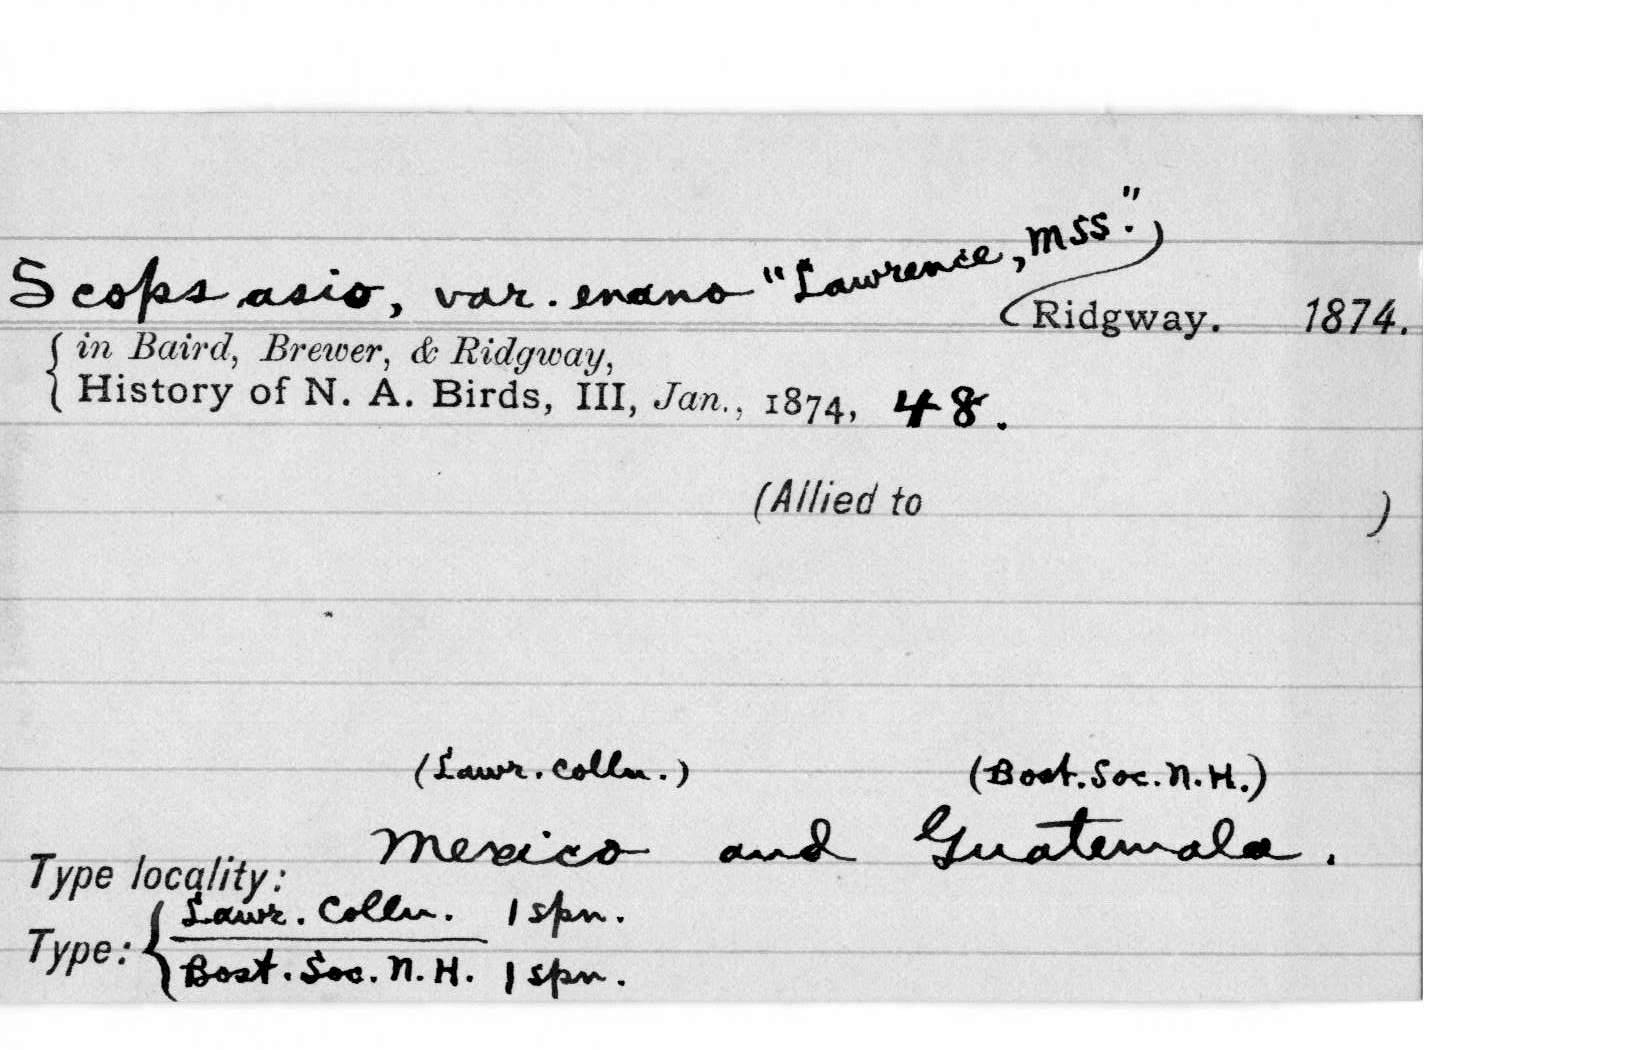 Scops asio, var. enano "Lawrence, MSS.")
(Ridgway. 1874.
{ in Baird, Brewer, & Ridgway,
History of N. A. Birds, III, Jan., 1874, 48.
(Allied to )
(Lawr. Colln.) (Bost. Soc. N. H.)
Type locality: Mexico and Guatemala.
Type: { Lawr. Colln. 1 spn.
Bost. Soc. N. H. 1 spn.